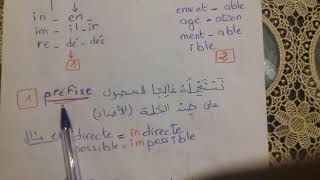 in _ en _
im _ il _ ir
re _ dé _ dés
1
ement _ able
age _ ation
ment _ able
ible
2
1 préfixe نستعمله غالبا للحصول
على ضد الكلمة (الأضداد)
مثال ex: directe = indirecte
possible = impossible